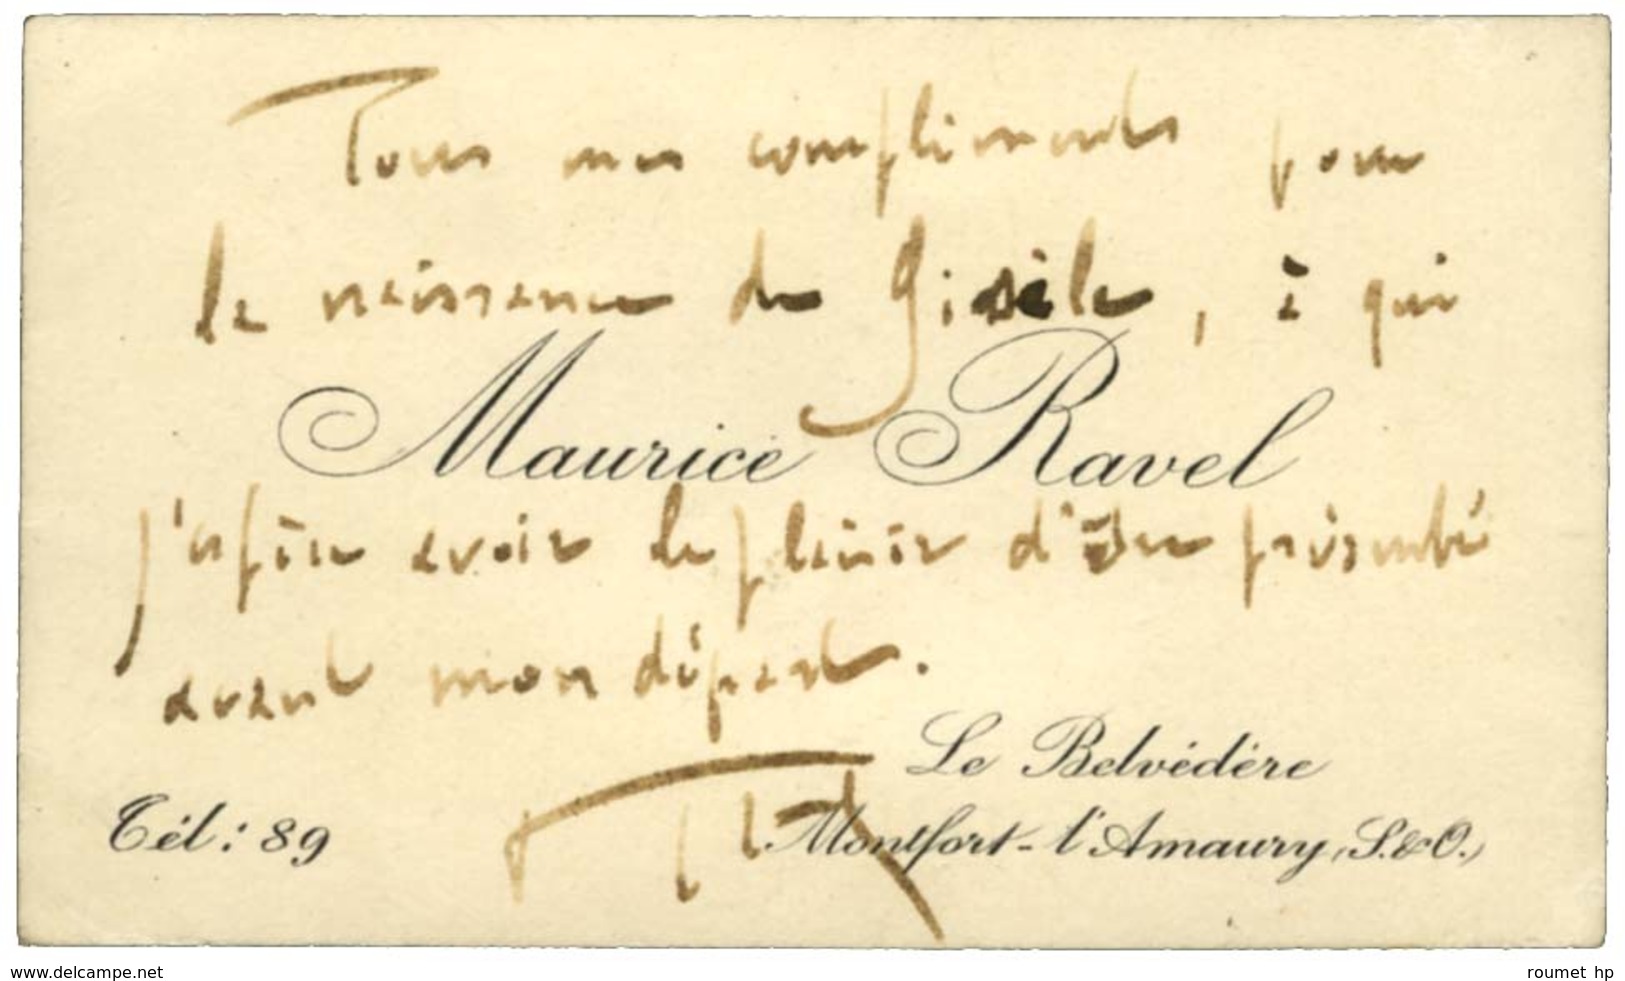 Tous mes compliments pour
la naissance de Gisèle, à qui
Maurice Ravel
j'espère avoir le plaisir d'être présenté
avant mon départ.
Le Belvédère
Tél : 89
Montfort-l'Amaury, (S.&O.)
www.delcampe.net
roumet hp